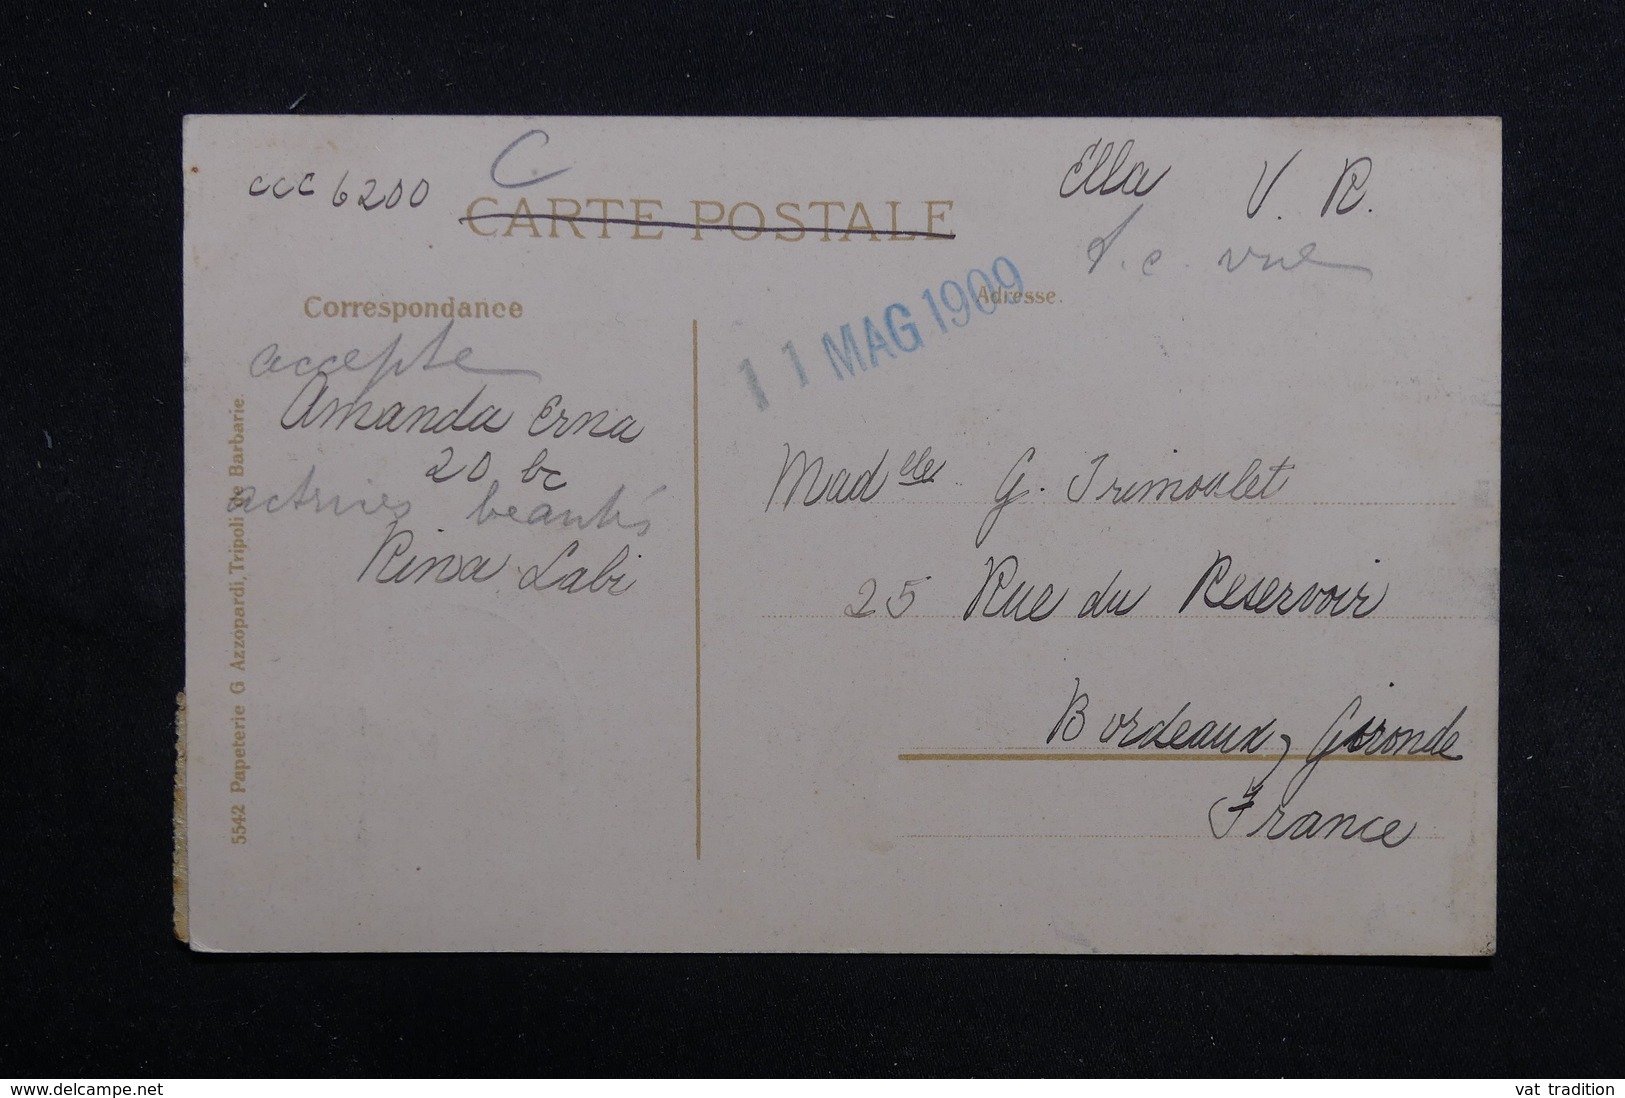 C.
ccc 6200
CARTE POSTALE
Ella V. R.
t.c. vue
Correspondance
Adresse.
11 MAG 1909
accepte
Amanda Erna
20 bc
actrices beautés
Rina Labi
Madelle G. Trimoulet
25 Rue du Reservoir
Bordeaux, Gironde
France
5542 Papeterie G Azzopardi, Tripoli de Barbarie.
www.delcampe.net
vat tradition